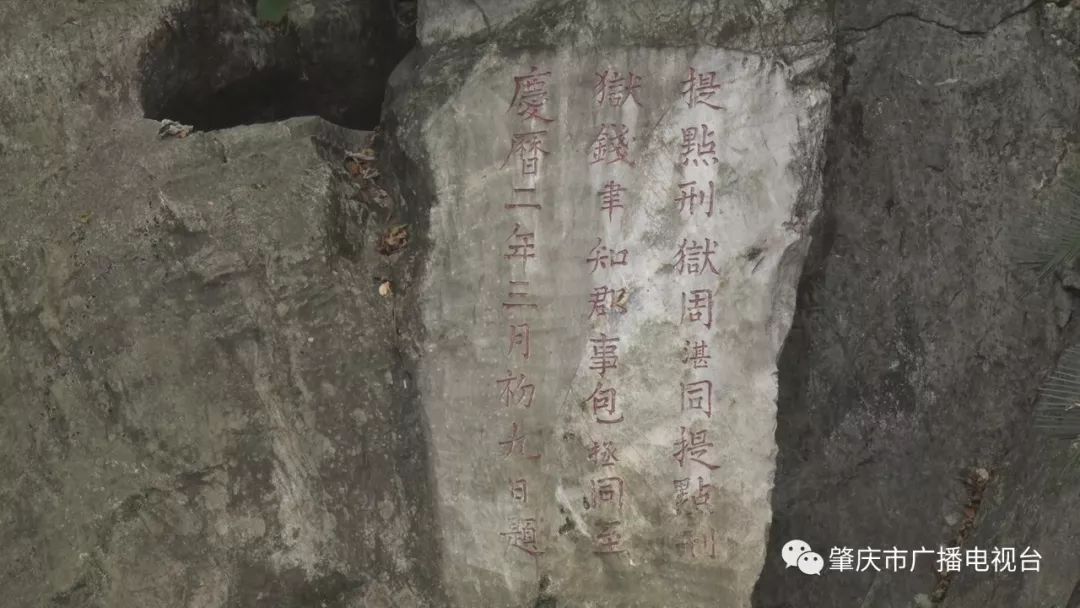 提點刑獄周湛同提點刑
獄錢聿知郡事包拯同至
慶曆二年三月初九日題
肇庆市广播电视台